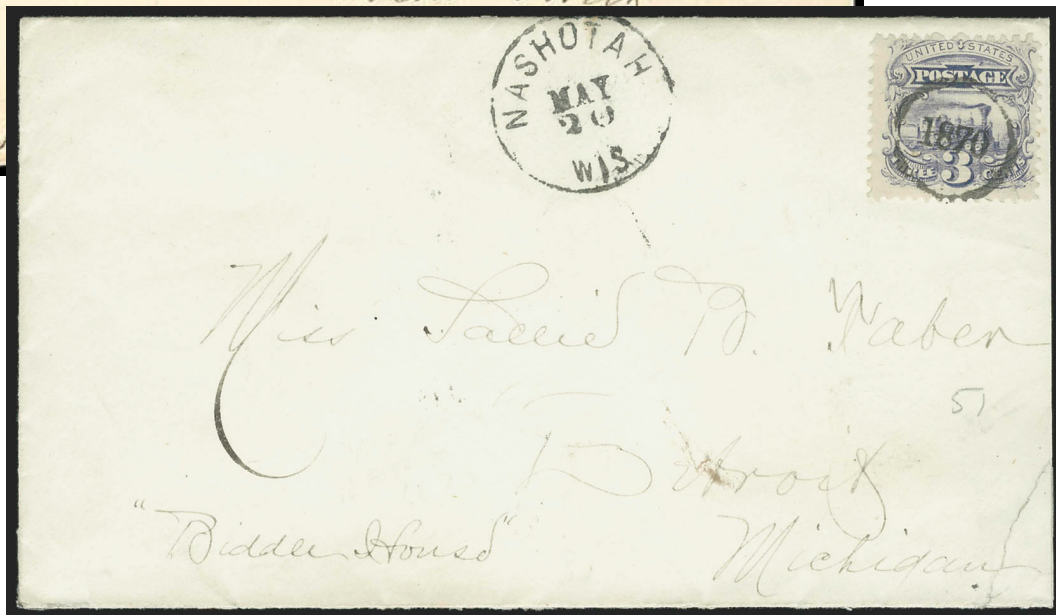 NASHOTAH
MAY
20
WIS.
UNITED STATES
POSTAGE
1870
THREE 3 CENTS
Miss Sallie B. Faber
51
Detroit
"Biddle House"
Michigan